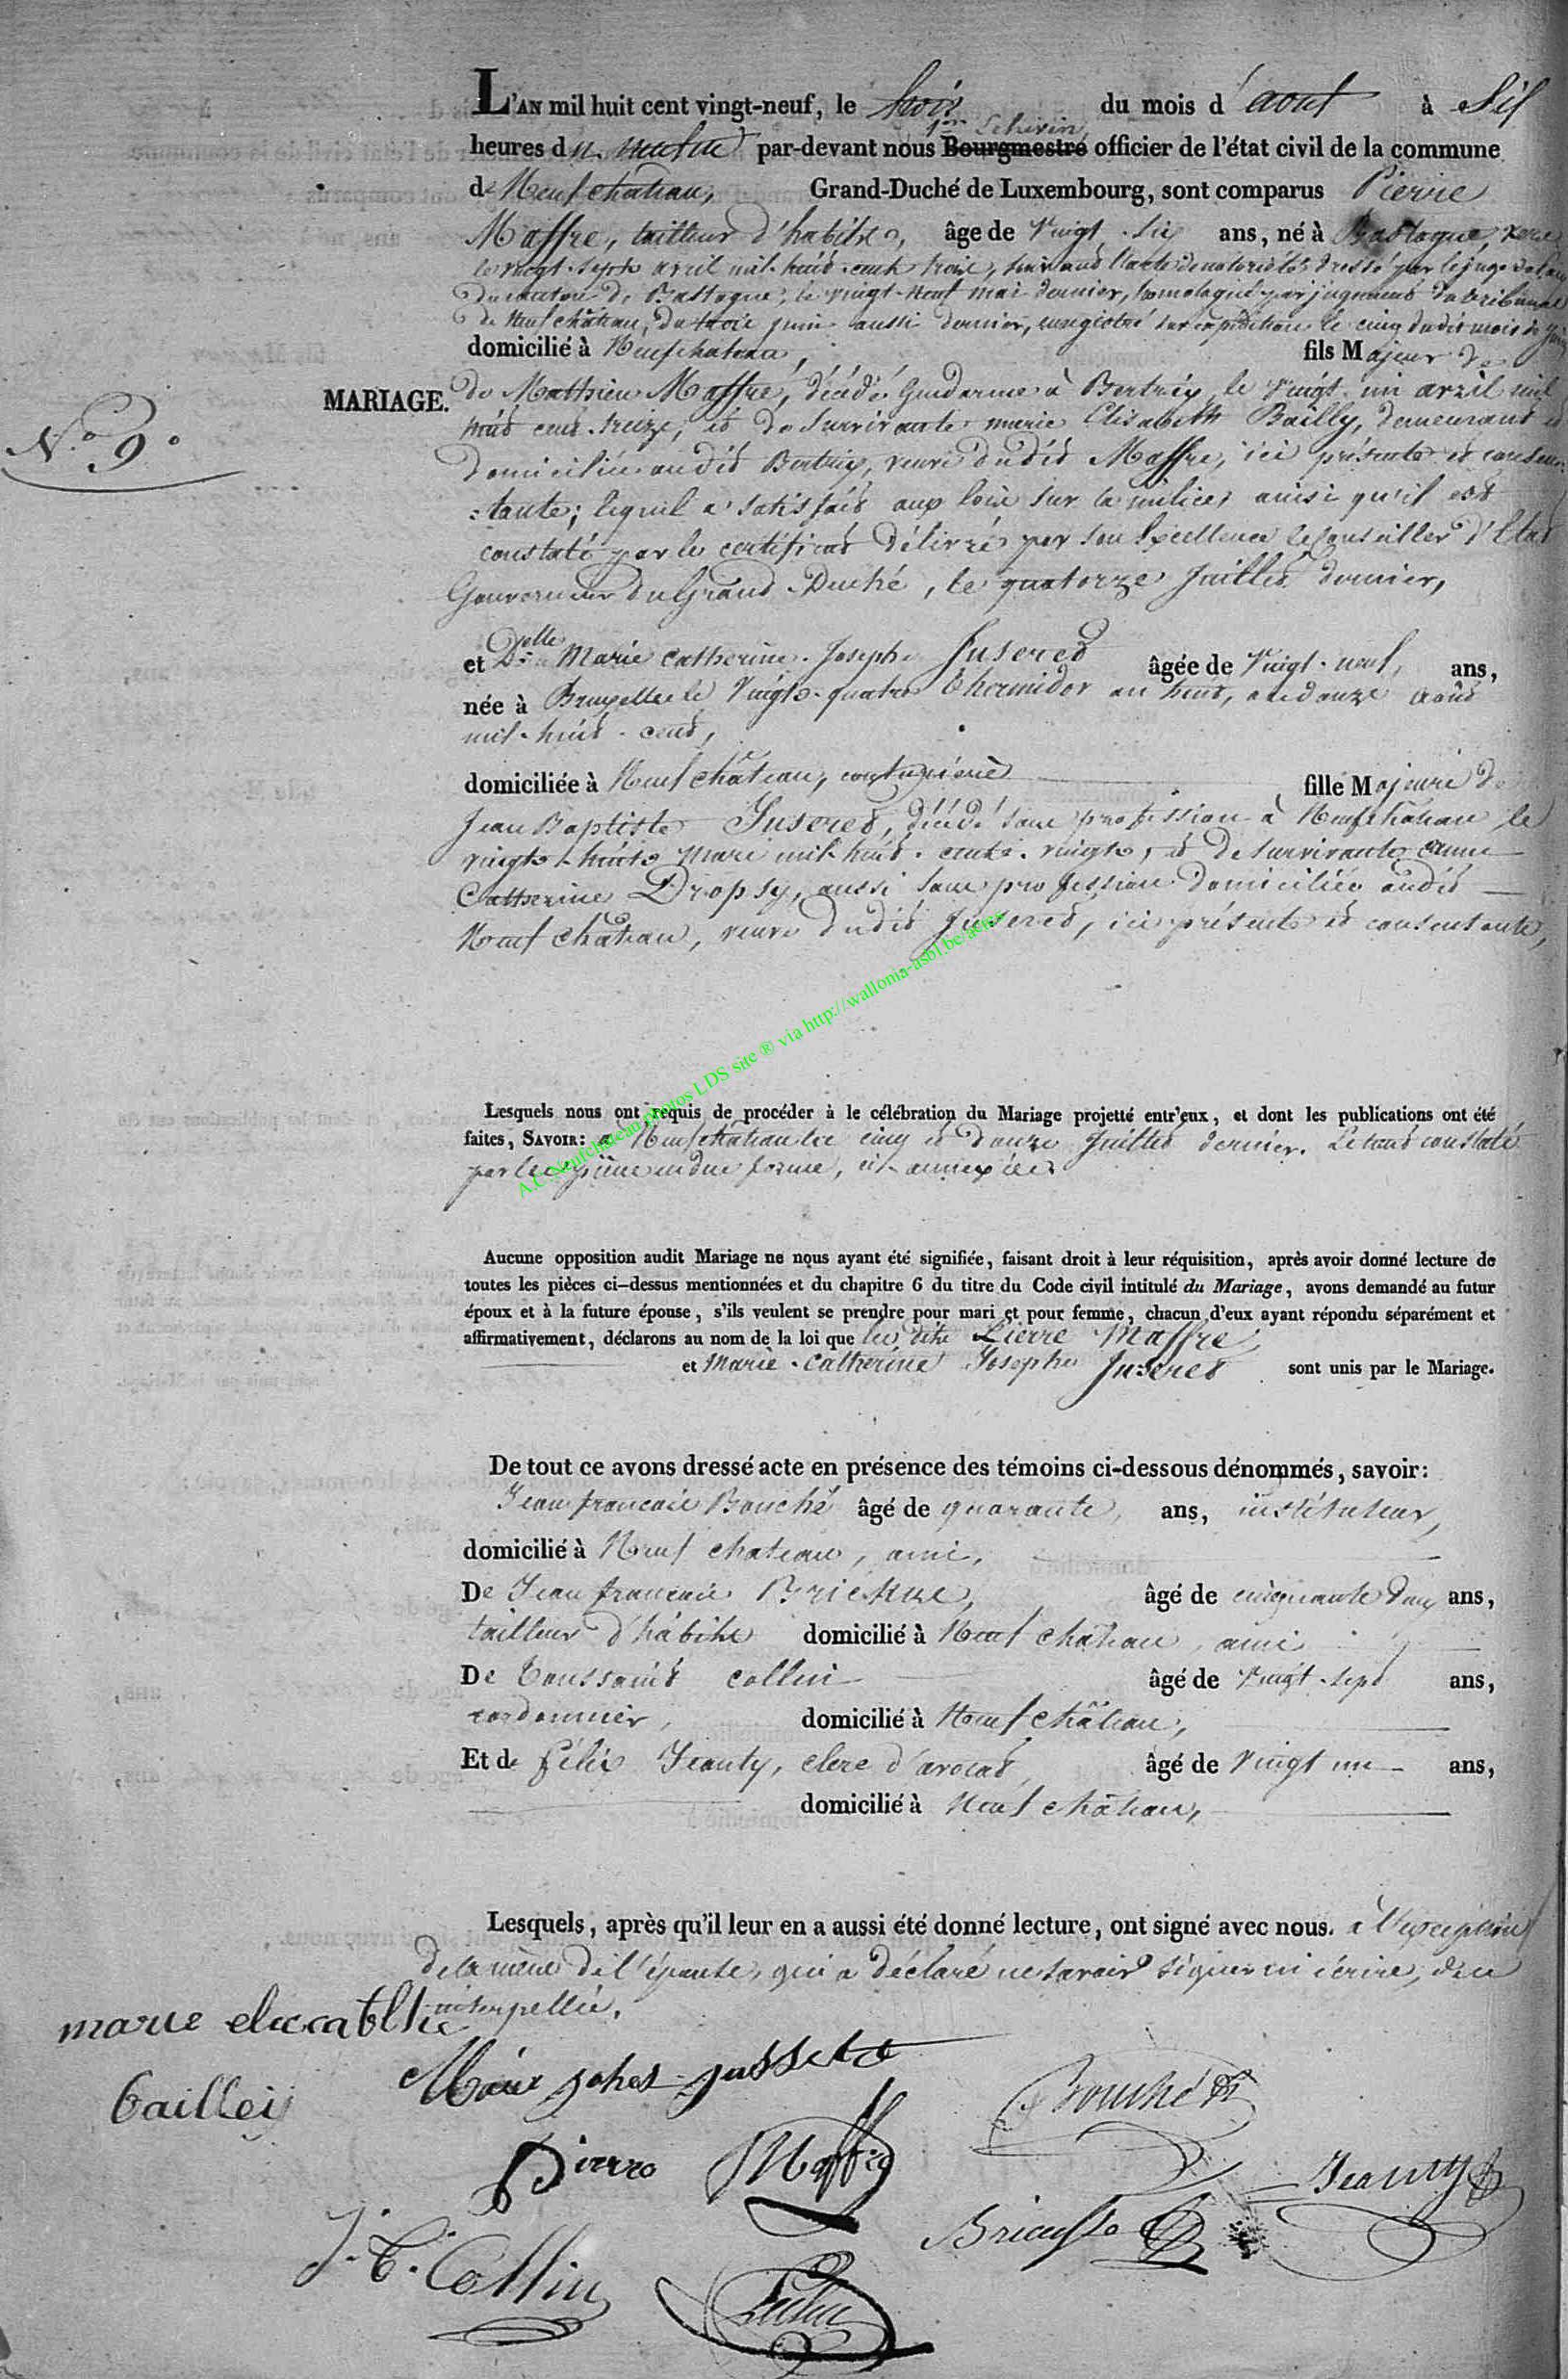 L'AN mil huit cent vingt-neuf, le trois du mois d'août à six
1er Echevin,
heures du matin par-devant nous Bourgmestre officier de l'état civil de la commune
de Neufchâteau, Grand-Duché de Luxembourg, sont comparus Pierre
Maffre, tailleur d'habits, âge de vingt-six ans, né à Bastogne,
le vingt-sept avril mil-huit-cent trois, suivant l'acte de notoriété dressé par le juge de paix
du canton de Bastogne, le vingt-neuf mai dernier, homologué par jugement du tribunal
de Neufchâteau, du trois juin aussi dernier, enregistré sur expédition le cinq dudit mois de juin
domicilié à Neufchateau, fils Majeur de
MARIAGE.
N.o 9.o
de Mathieu Maffre, décédé Gendarme à Bertrix le vingt-un avril mil
huit cent-treize, et de survivante marie Elisabeth Bailly, demeurant et
domiciliée audit Bertrix, veuve dudit Maffre, ici présente et consen-
tante; lequel a satisfait aux lois sur la milice, ainsi qu'il est
constaté par le certificat délivré par son Excellence le conseiller d'Etat
Gouverneur du Grand-Duché, le quatorze Juillet dernier,
et Delle Marie Catherine-Josephe Juseret âgée de vingt-neuf, ans,
née à Bruxelles le vingt-quatre thermidor an huit, ou douze août
mil-huit-cent,
domiciliée à Neufchâteau, couturière fille Majeure de
Jean Baptiste Juseret, décédé sans profession à Neufchâteau le
vingt-huit mars mil-huit-cent-vingt, et de survivante anne
Catherine Dropsy, aussi sans profession domiciliée audit
Neufchâteau, veuve dudit Juseret, ici présente et consentante,
A.C. Neufchateau photos LDS site ® via http://wallonia-asbl.be/actes
Lesquels nous ont requis de procéder à le célébration du Mariage projetté entr'eux, et dont les publications ont été
faites, SAVOIR: à Neufchâteau les cinq et douze Juillet dernier. Le tout constaté
par les pièces en due forme, ci-annexées.
Aucune opposition audit Mariage ne nous ayant été signifiée, faisant droit à leur réquisition, après avoir donné lecture de
toutes les pièces ci-dessus mentionnées et du chapitre 6 du titre du Code civil intitulé du Mariage, avons demandé au futur
époux et à la future épouse, s'ils veulent se prendre pour mari et pour femme, chacun d'eux ayant répondu séparément et
affirmativement, déclarons au nom de la loi que les dits Pierre Maffre,
et Marie-Catherine Josephe Juseret sont unis par le Mariage.
De tout ce avons dressé acte en présence des témoins ci-dessous dénommés, savoir:
Jean françois Bouché âgé de quarante, ans, instituteur,
domicilié à Neufchateau, ami,
De Jean françois Bricusse, âgé de cinquante deux ans,
tailleur d'habits domicilié à Neufchâteau, ami
De Toussaint collin âgé de vingt-sept ans,
cordonnier, domicilié à Neufchâteau,
Et de félix Jeanty, clerc d'avocat, âgé de vingt un ans,
domicilié à Neufchâteau,
Lesquels, après qu'il leur en a aussi été donné lecture, ont signé avec nous. à l'exception
de la mère de l'épouse, qui a déclaré ne savoir signer ni écrire, de ce
interpellée.
marie
bailleij
Bouché
Pierre Maffre
Jeanty
Bricusse
J. T. Collin